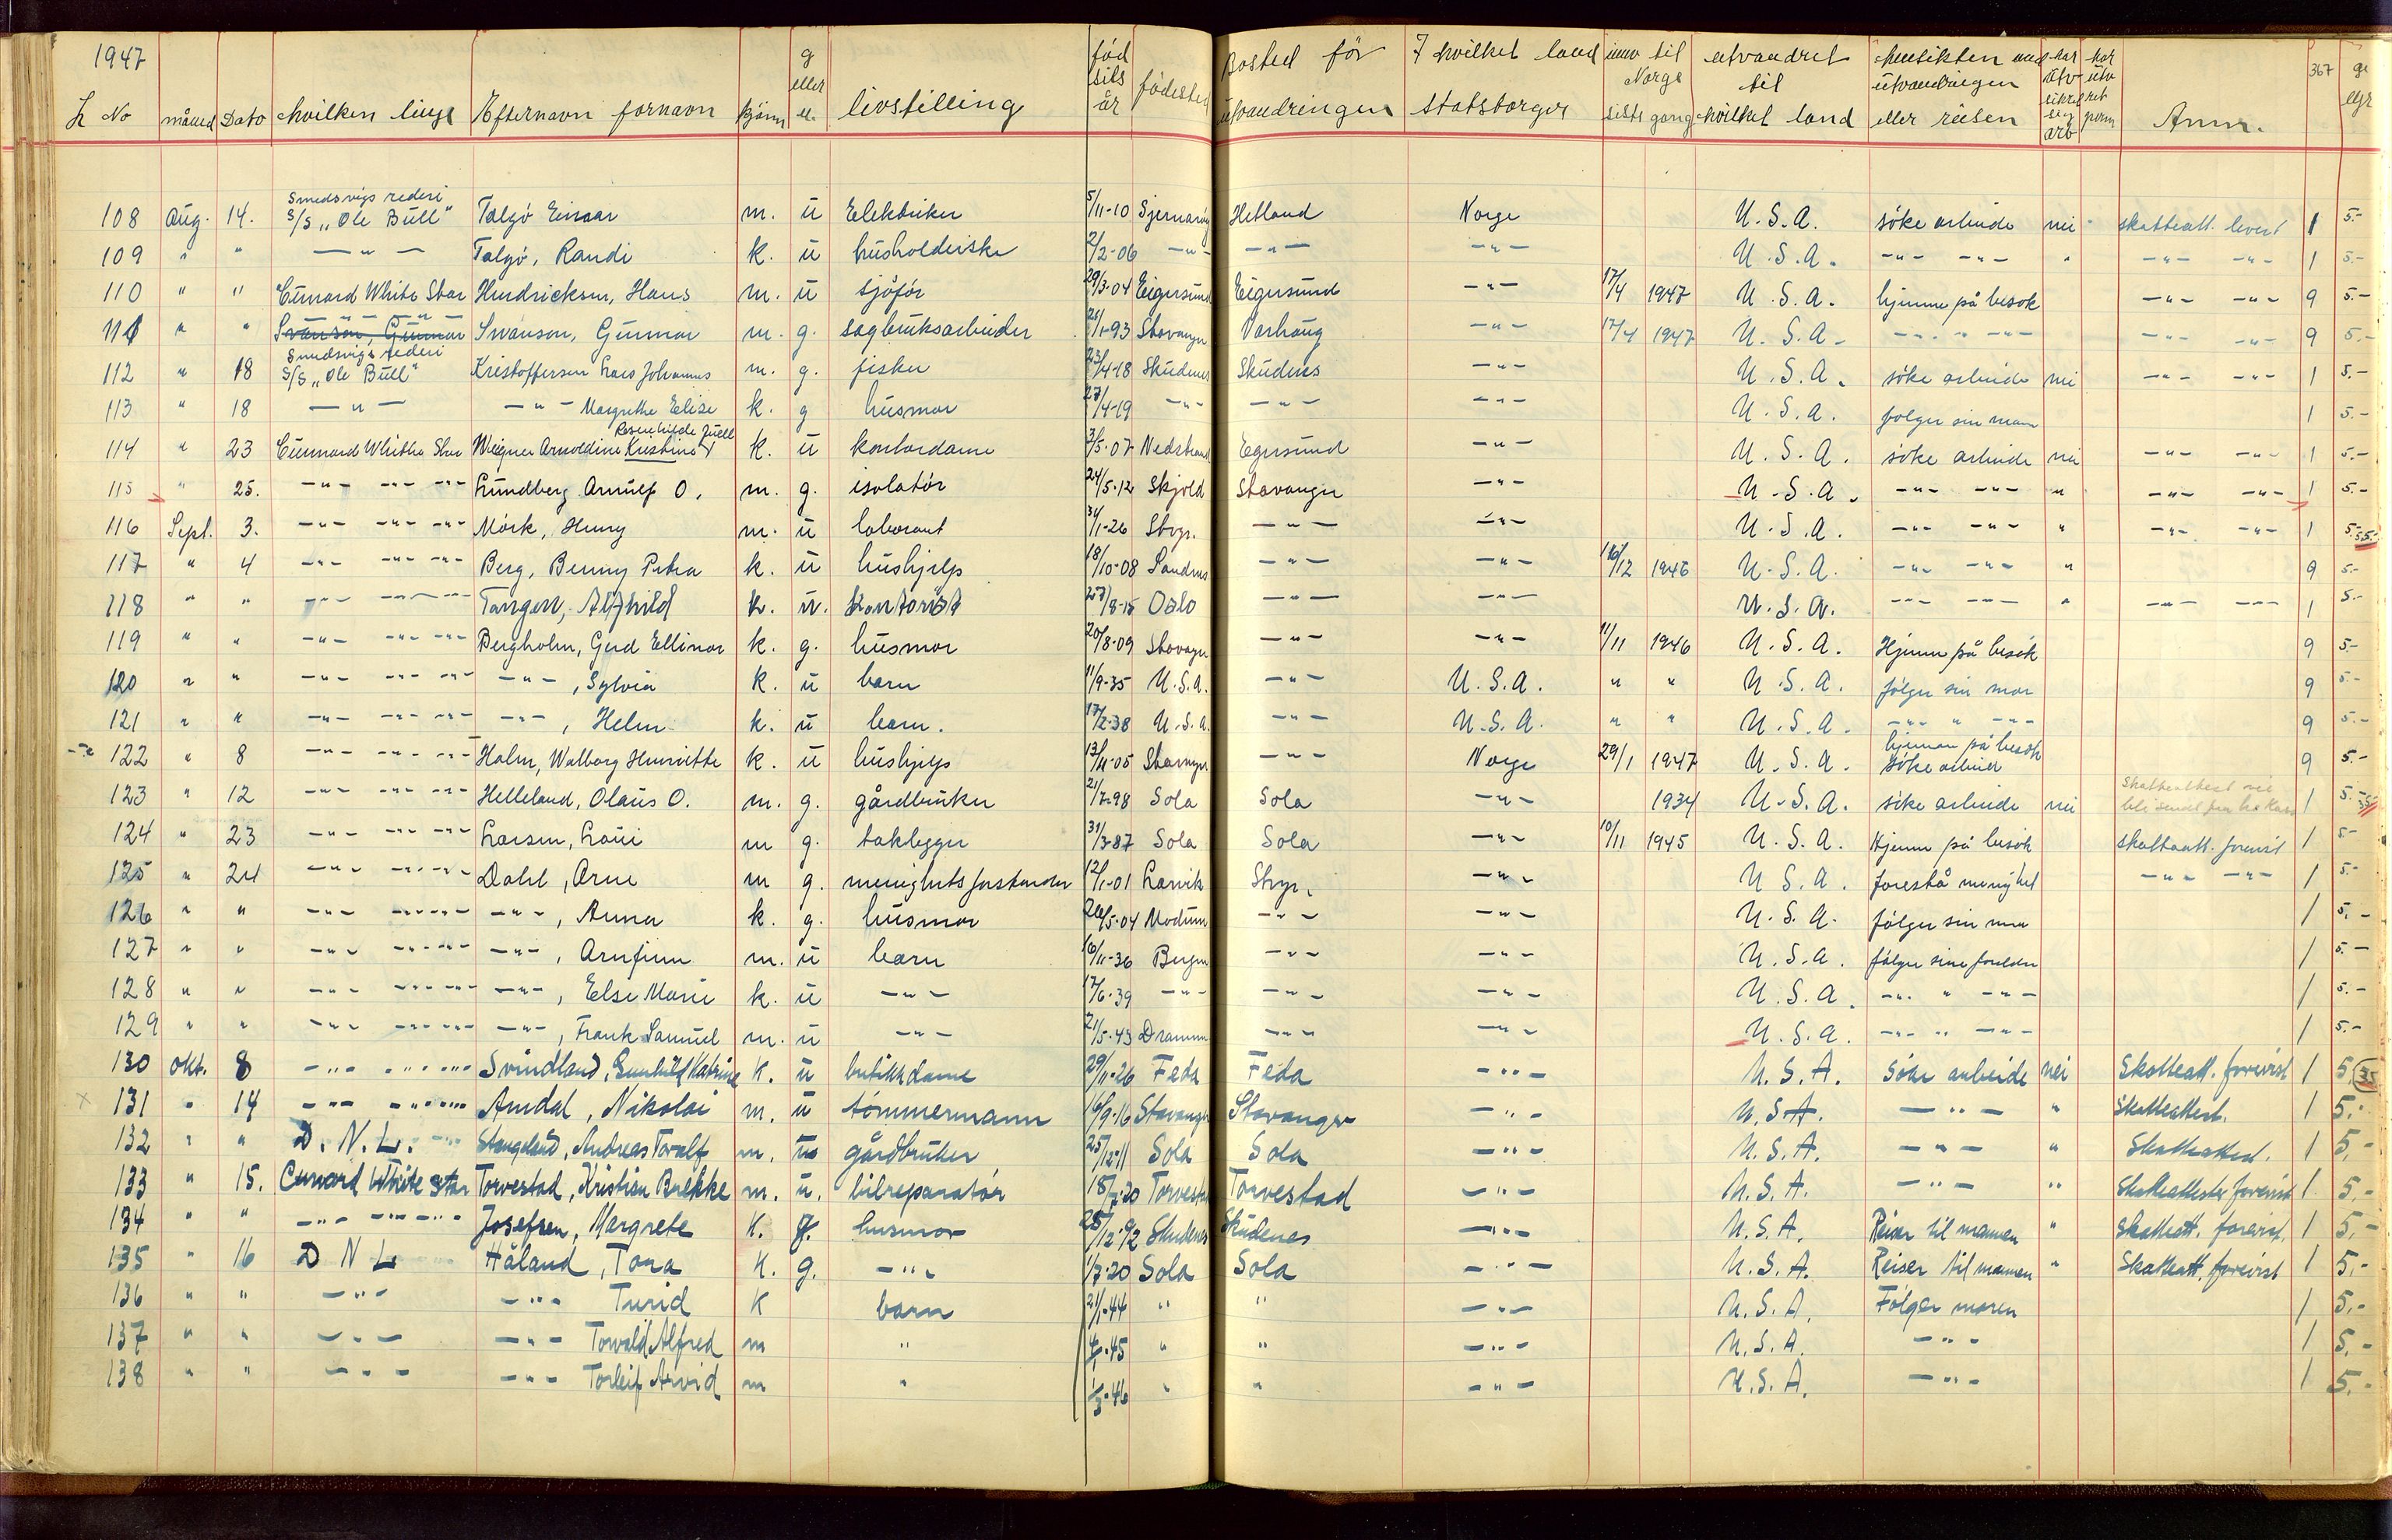 1947
L No måned Dato hvilken linje Efternavn fornavn kjønn g eller u livstilling födselsår födested Bosted för utvandringen I hvilket land statsborger innv til Norge siste gang utvandret til hvilket land hensikten med utvandringen eller reisen Anm. 367
108 Aug. 14. Smedsvigs rederi S/S "Ole Bull" Talgö Einar m. ü Elektriker 5/11-10 Sjernarøy Hetland Norge U.S.A. söke arbeide nei skatteatt. levert 1 5.-
109 " " -"- Talgö, Randi k. ü husholderske 2/2-06 -"- -"- -"- U.S.A. -"- -"- " -"- -"- 1 5.-
110 " " Cunard White Star Hendricksen, Hans m. ü sjøfør 29/3-04 Eigersund Eigersund -"- 17/4 1947 U.S.A. hjemme på besök -"- -"- 9 5.-
111 " " -"- -"- Svanson, Gunnar Svanson, Gunnar m. g. sagbruksarbeider 21/1-93 Stavanger Varhaug -"- 17/4 1947 U.S.A. -"- -"- -"- -"- 9 5.-
112 " 18 Smedsvigs rederi S/S "Ole Bull" Kristoffersen Lars Johannes m. g. fisker 23/4-18 Skudenes Skudenes -"- U.S.A. söke arbeide nei -"- -"- 1 5.-
113 " 18 -"- -"- Margrethe Elise k. g husmor 27/4-19 -"- -"- -"- U.S.A. følger sin man 1 5.-
114 " 23 Cunnard Whithe Star Arnoldine Kristine Rosenhilde Juell k. ü kontordame 3/5-07 Nedstrand Egersund -"- U.S.A. söke arbeide nei -"- -"- 1 5.-
115 " 25. -"- -"- -"- Lundberg Arnulf O. m. g. isolatör 24/5-12 Skjold Stavanger -"- U.S.A. -"- -"- " -"- -"- 1 5.-
116 Sept. 3. -"- -"- -"- Mörk, Henry m. ü laborant 31/1-26 Stvgr. -"- -"- U.S.A. -"- -"- " -"- -"- 1 5.-
117 " 4 -"- -"- -"- Berg, Benny Petra k. ü hushjelp 18/10-08 Sandnes -"- -"- 10/12 1946 U.S.A. -"- -"- " 9 5.-
118 " " -"- -"- -"- Tangen, Alfhild k. u. kontorist 27/8-15 Oslo -"- -"- U.S.A. -"- -"- " -"- -"- 1 5.-
119 " " -"- -"- -"- Bergholm, Gerd Ellinor k. g. husmor 20/8-09 Stavanger -"- -"- 11/11 1946 U.S.A. Hjemme på besök 9 5.-
120 " " -"- -"- -"- -"-, Sylvia k. ü barn 11/9-35 U.S.A. -"- U.S.A. " " U.S.A. følger sin mor 9 5.-
121 " " -"- -"- -"- -"-, Helen k. ü barn. 17/2-38 U.S.A. -"- U.S.A. " " U.S.A. -"- " -"- 9 5.-
122 " 8 -"- -"- -"- Holm, Walborg Henriette k. ü hushjelp 13/11-05 Stavanger -"- Norge 29/1 1947 U.S.A. hjemme på besök söke arbeid 9 5.-
123 " 12 -"- -"- -"- Helleland, Olaus O. m. g. gårdbruker 21/7-98 Sola Sola -"- 1934 U.S.A. söke arbeide nei skatteattest vil bli sendt fra 1 5.-
124 " 23 -"- -"- -"- Larsen, Laui m g. taklegger 31/3-87 Sola Sola -"- 10/11 1945 U.S.A. Hjemme på besök skatteatt. forevist 1 5-
125 " 24 -"- -"- -"- Dahl, Arne m g. menighetsforstander 12/1-01 Larvik Stvgr. -"- U.S.A. forestå menighet -"- -"- 1 5.-
126 " " -"- -"- -"- -"-, Anna k. g. husmor 26/5-04 Modum -"- -"- U.S.A. følger sin man 1 5.-
127 " " -"- -"- -"- -"-, Arnfinn m. ü barn 16/11-36 Bergen -"- -"- U.S.A. følger sine foreldre 1 5.-
128 " " -"- -"- -"- -"-, Else Marie k. ü -"- 17/6-39 -"- -"- -"- U.S.A. -"- " -"- 1 5.-
129 " " -"- -"- -"- -"-, Frank Samuel m. ü -"- 21/5-43 Drammen -"- -"- U.S.A. -"- " -"- 1 5.-
130 Okt. 8 -"- -"- -"- Svindland, Gunhild Katrine K. ü butikkdame 29/11-26 Feda Feda -"- U.S.A. Söke arbeide nei Skatteatt. forevist 1 5. 35
x 131 " 14 -"- -"- -"- Amdal, Nikolai m. ü tømmermann 16/9-16 Stavanger Stavanger -"- U.S.A. -"- " Skatteattest. 1 5.-
132 " " D.N.L. -"- Stangeland, Andreas Toralf m. u gårdbruker 25/12-11 Sola Sola -"- U.S.A. -"- " Skatteattest. 1 5.-
133 " 15. Cunard White Star Torvestad, Kristian Brekke m. u. bilreparatør 18/7-20 Torvestad Torvestad -"- U.S.A. -"- " Skatteattester forevist 1 5.-
134 " " -"- -"- -"- Josefsen, Margrete K. g. husmor 25/12-92 Skudenes Skudenes -"- U.S.A. Reiser til mannen " Skatteatt. forevist. 1 5.-
135 " 16 D N L Håland, Tora K. g. -"- 1/7-20 Sola Sola -"- U.S.A. Reiser til mannen " Skatteatt. forevist 1 5.-
136 " " -"- -"- Turid K barn 21/1-44 " " -"- U.S.A. Følger moren 1 5.-
137 " " -"- -"- Torvald Alfred m " 45 " " -"- U.S.A. -"- 1 5.-
138 " " -"- -"- Torleif Arvid m " 1/3-46 " " -"- U.S.A. -"- 1 5.-